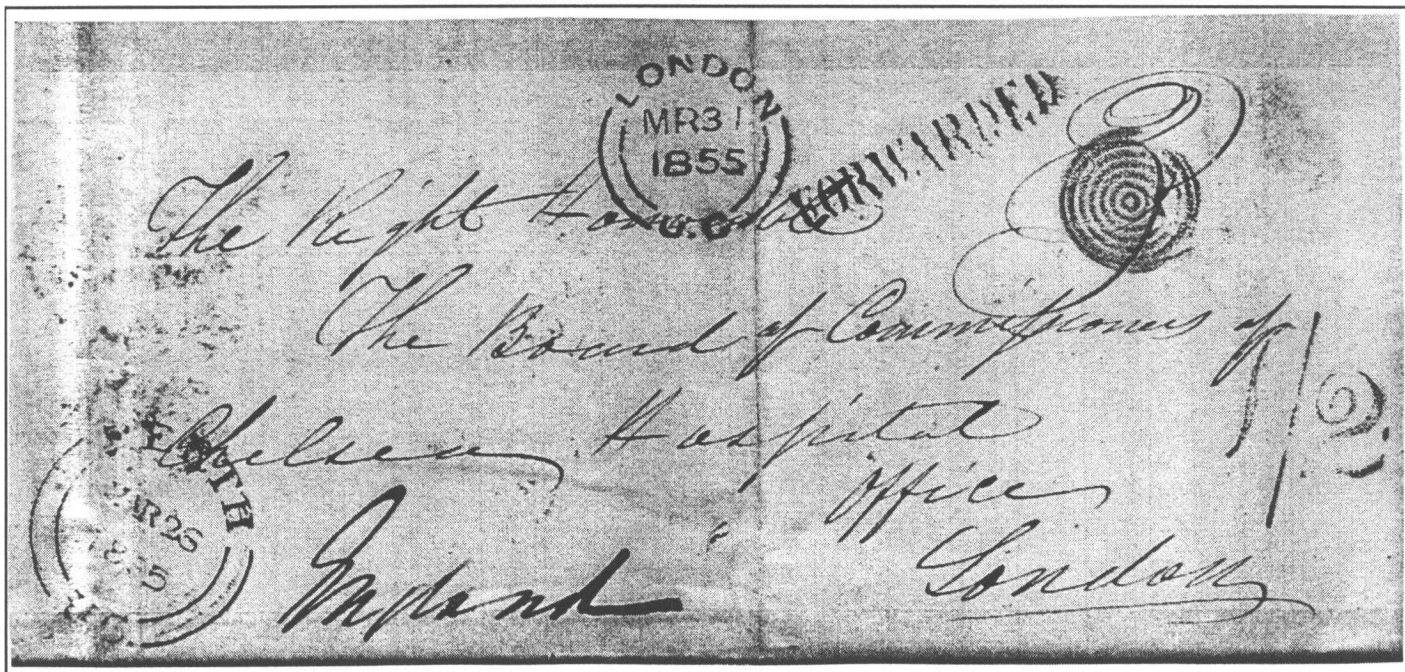 LONDON
MR 31
1855
FORWARDED
The Right Honorable
The Board of Commissioners of
1/2
Chelsea Hospital
Office
London
England
MR 28